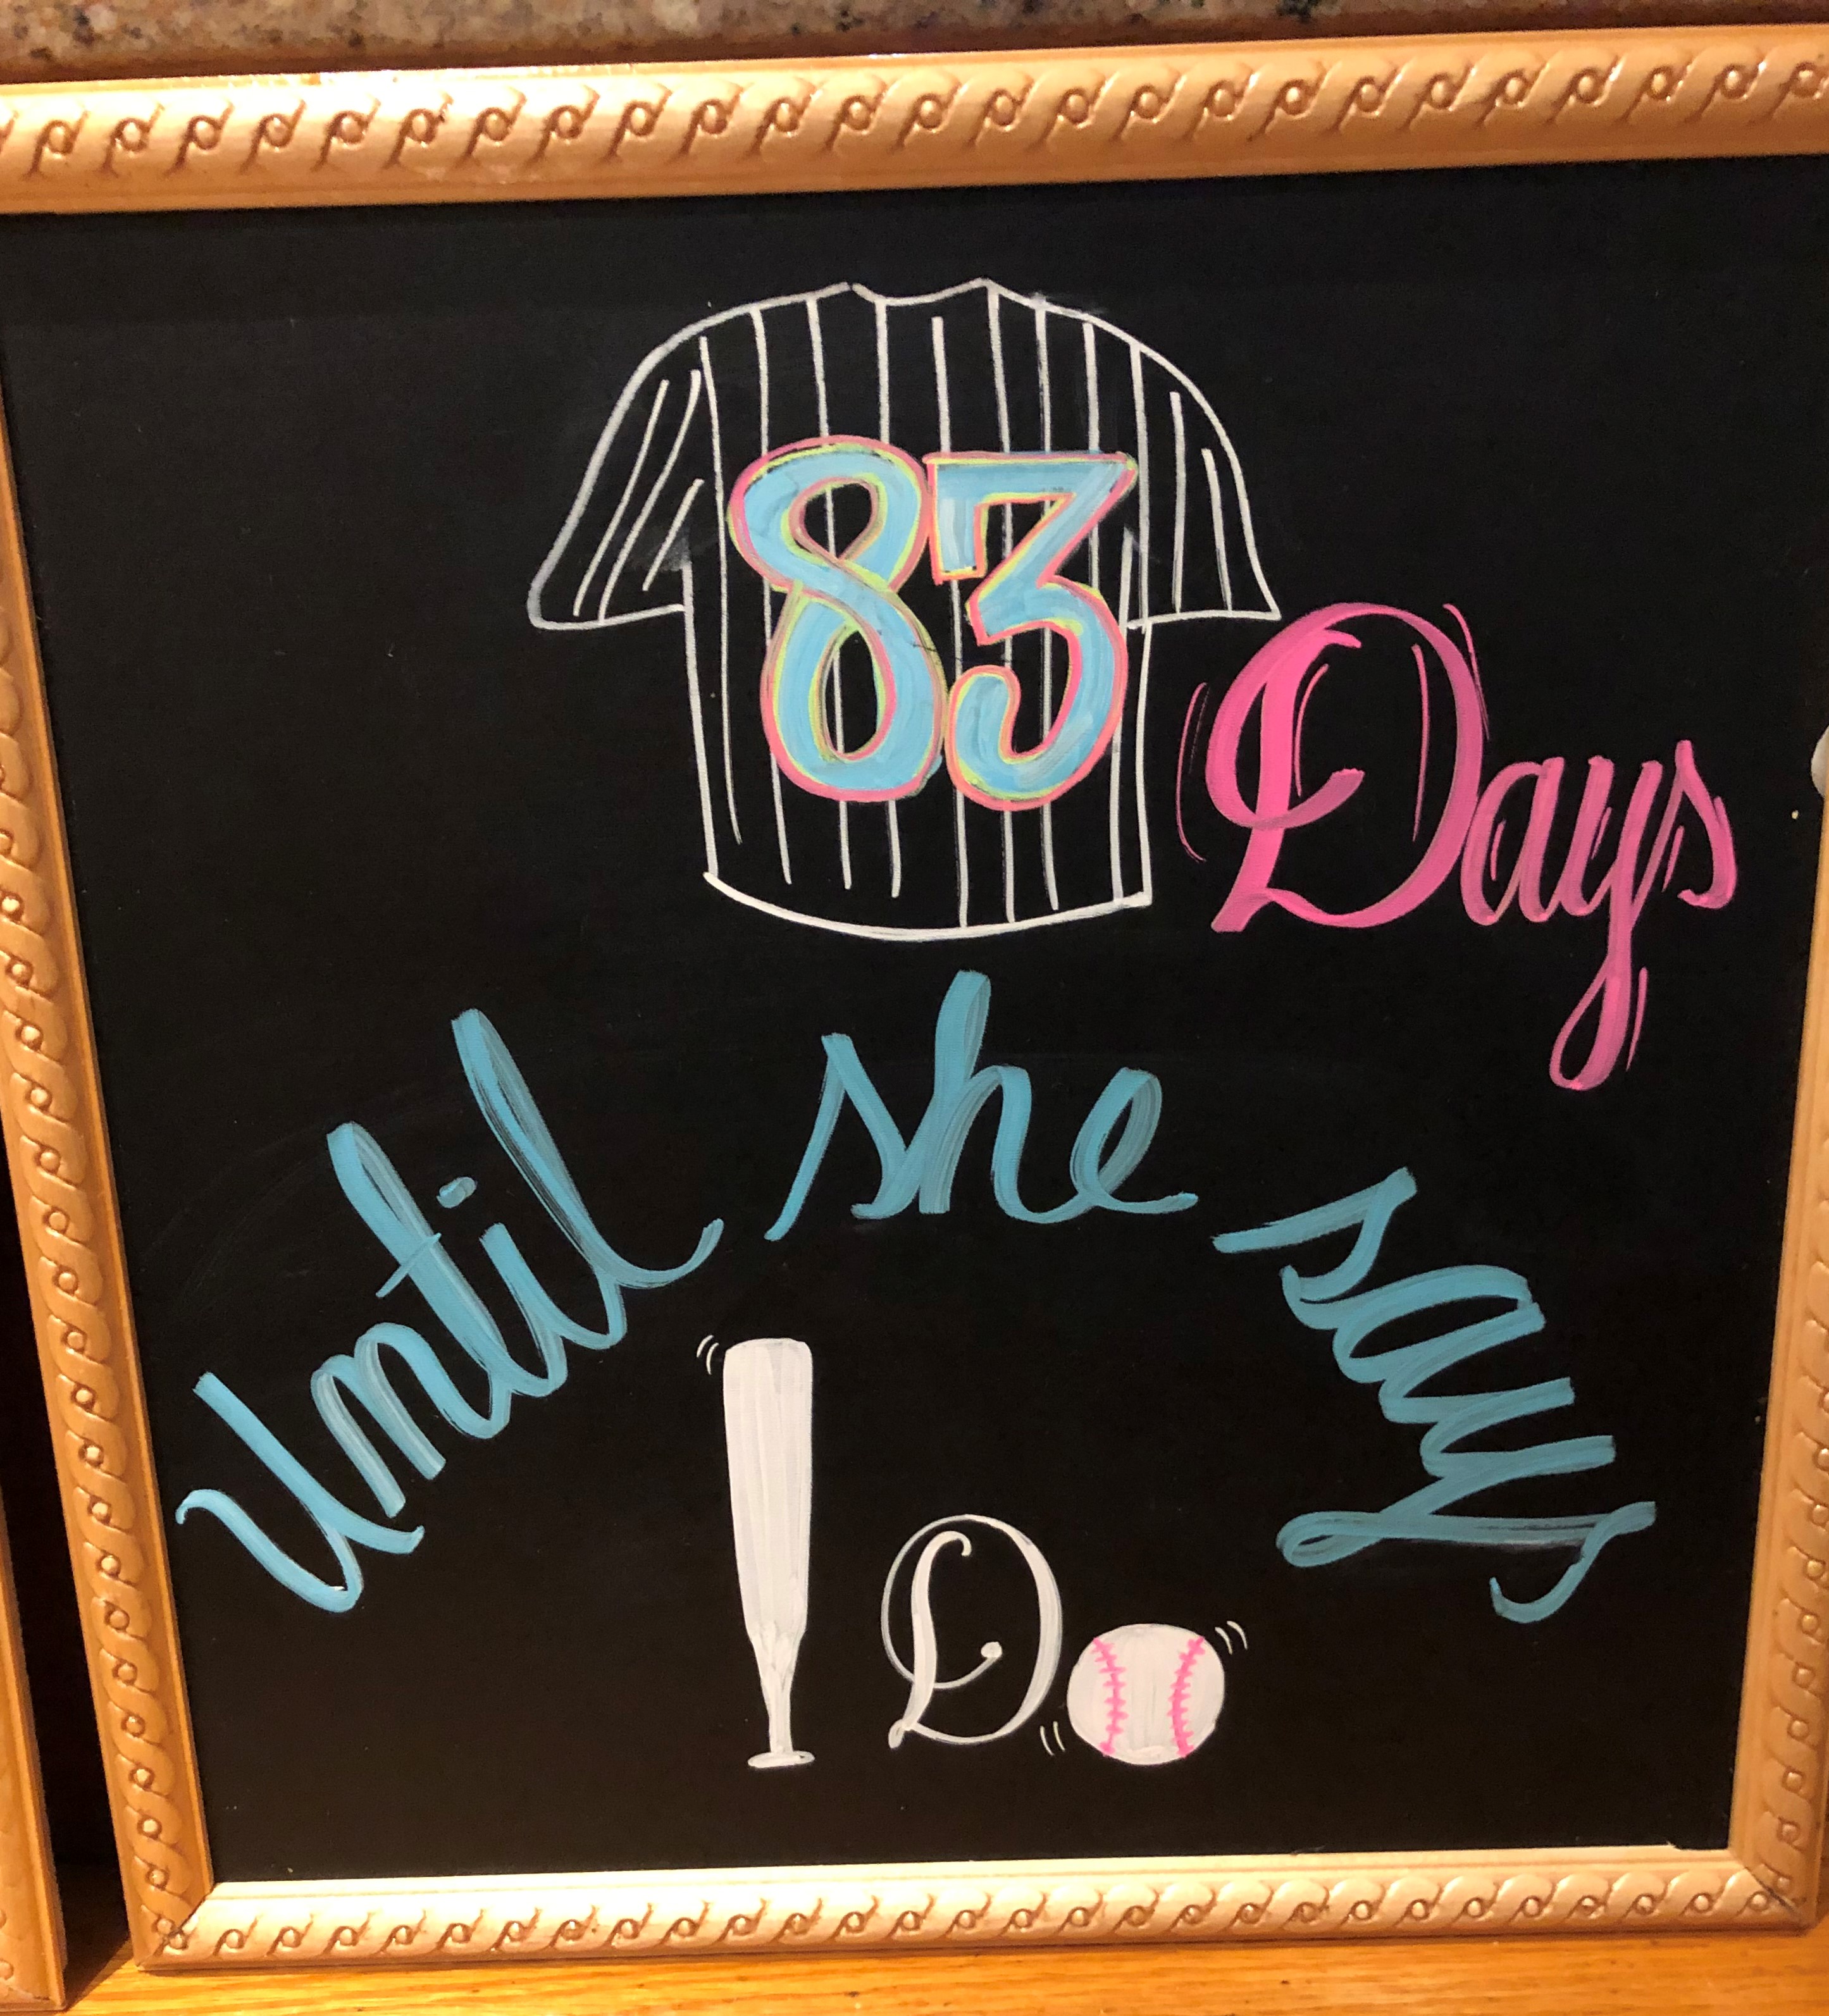 83 Days
until she says
I Do